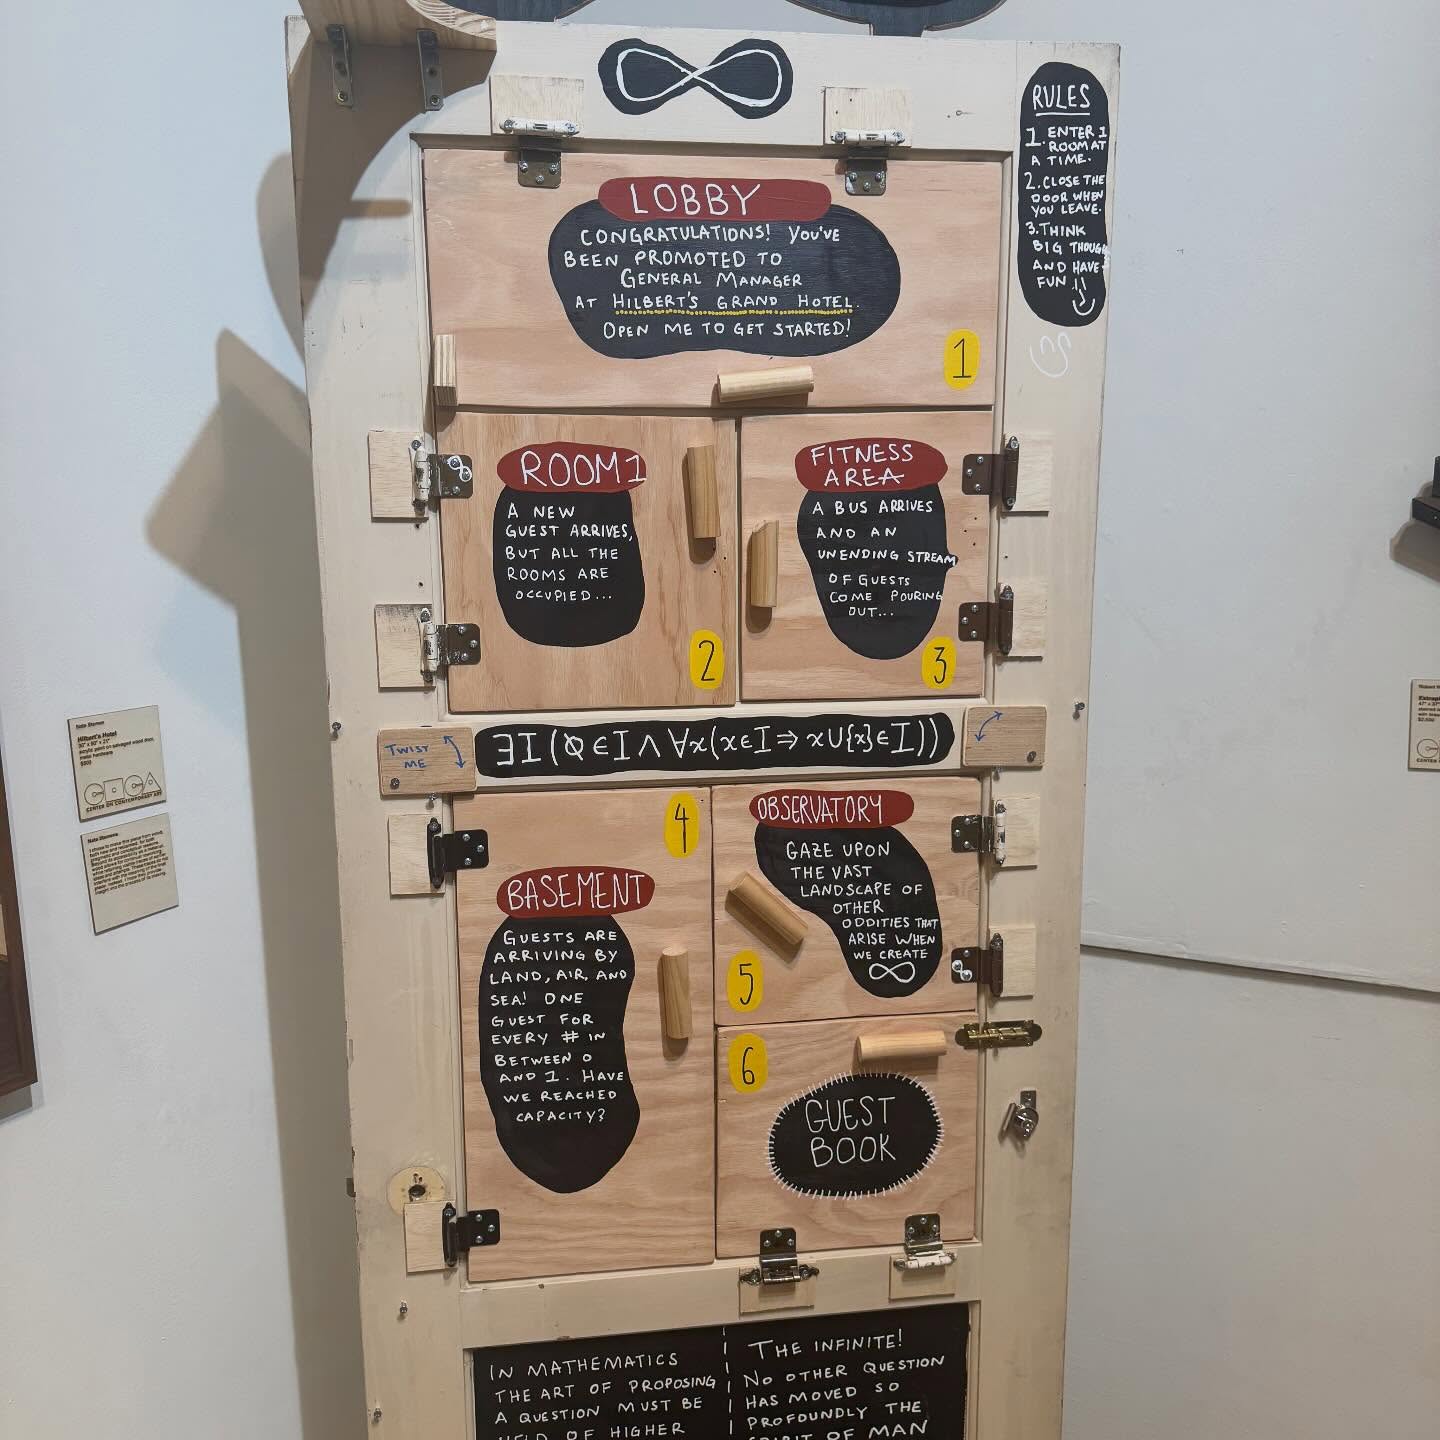 RULES
1. ENTER 1
ROOM AT
A TIME.
2. CLOSE THE
DOOR WHEN
YOU LEAVE.
3. THINK
BIG THOUGHTS
AND HAVE
FUN!!
LOBBY
CONGRATULATIONS! YOU'VE
BEEN PROMOTED TO
GENERAL MANAGER
AT HILBERT'S GRAND HOTEL.
OPEN ME TO GET STARTED!
1
ROOM 1
A NEW
GUEST ARRIVES,
BUT ALL THE
ROOMS ARE
OCCUPIED...
2
FITNESS
AREA
A BUS ARRIVES
AND AN
UNENDING STREAM
OF GUESTS
COME POURING
OUT...
3
TWIST
ME
∃I (∅ ∈ I ∧ ∀x (x ∈ I ⇒ x ∪ {x} ∈ I))
4
BASEMENT
GUESTS ARE
ARRIVING BY
LAND, AIR, AND
SEA! ONE
GUEST FOR
EVERY # IN
BETWEEN 0
AND 1. HAVE
WE REACHED
CAPACITY?
OBSERVATORY
GAZE UPON
THE VAST
LANDSCAPE OF
OTHER
ODDITIES THAT
ARISE WHEN
WE CREATE
∞
5
6
GUEST
BOOK
IN MATHEMATICS
THE ART OF PROPOSING
A QUESTION MUST BE
HELD OF HIGHER
THE INFINITE!
NO OTHER QUESTION
HAS MOVED SO
PROFOUNDLY THE
SPIRIT OF MAN
Hilbert's Hotel
CENTER ON CONTEMPORARY ART